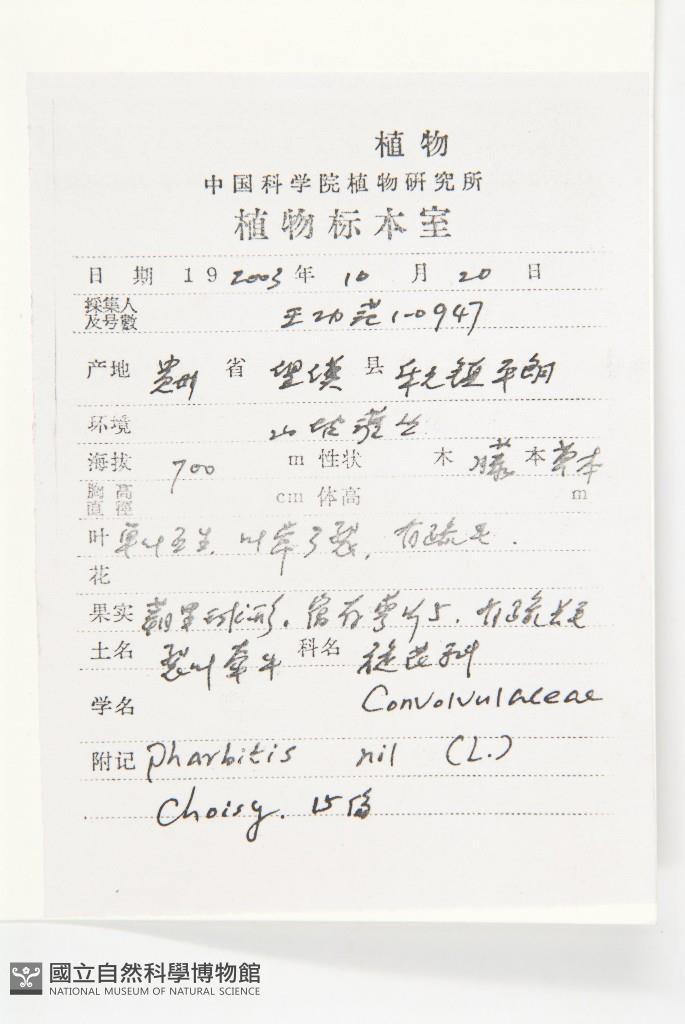 植物
中国科学院植物研究所
植物标本室
日期 19 2003 年 10 月 20 日
採集人及号數 1-0947
产地 贵州 省 望谟 县
环境 山坡灌丛
海拔 700 m 性状 木 藤 本 草本
胸高直徑 cm 体高 m
叶 单叶互生, 叶常3裂, 有疏毛.
花
果实 蒴果球形. 宿存萼片5. 有疏长毛
土名 裂叶牵牛 科名 旋花科
学名 Convolvulaceae
附记 Pharbitis nil (L.)
Choisy. 15份
國立自然科學博物館
NATIONAL MUSEUM OF NATURAL SCIENCE